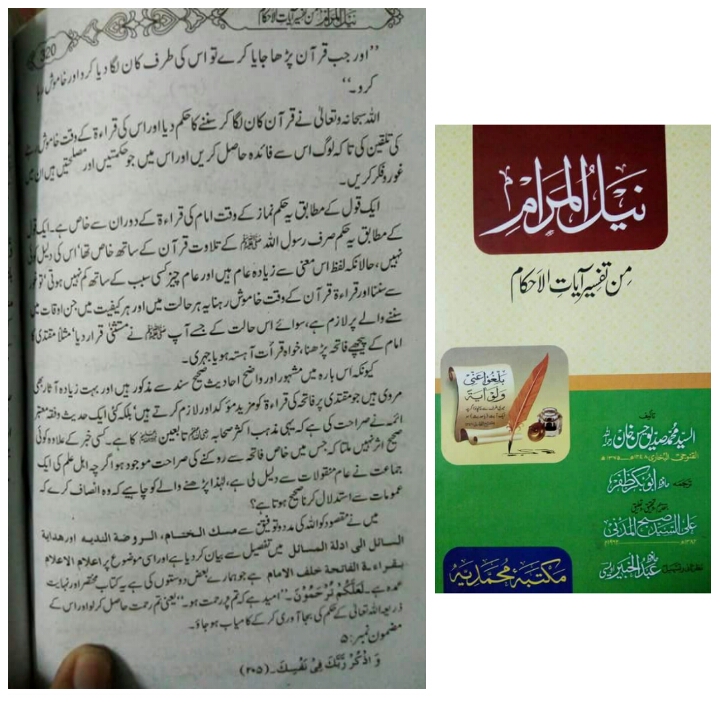 نیل المرام من تفسیر آیات الاحکام
320
’’اور جب قرآن پڑھا جایا کرے تو اس کی طرف کان لگا دیا کرو اور خاموش رہا
کرو۔‘‘
اللہ سبحانہ وتعالیٰ نے قرآن کان لگا کر سننے کا حکم دیا اور اس کی قراءۃ کے وقت خاموش
کی تلقین کی تاکہ لوگ اس سے فائدہ حاصل کریں اور اس میں جو حکمتیں اور مصلحتیں ہیں ان میں
غور و فکر کریں۔
ایک قول کے مطابق یہ حکم نماز کے وقت امام کی قراءۃ کے دوران سے خاص ہے۔ ایک قول
کے مطابق یہ حکم صرف رسول اللہ ﷺ کے تلاوت قرآن کے ساتھ خاص تھا‘ اس کی دلیل کوئی
نہیں، حالانکہ لفظ اس معنی سے زیادہ عام ہیں اور عام چیز کسی سبب کے ساتھ کم نہیں ہوتی‘ تو غور
سے سننا اور قراءۃ قرآن کے وقت خاموش رہنا یہ ہر حالت میں اور ہر کیفیت میں جن اوقات میں
سننے والے پر لازم ہے، سوائے اس حالت کے جسے آپ ﷺ نے مستثنیٰ قرار دیا‘ مثلاً مقتدی کا
امام کے پیچھے فاتحہ پڑھنا، خواہ قرأت آہستہ ہو یا جہری۔
کیونکہ اس بارہ میں مشہور اور واضح احادیث صحیح سند سے مذکور ہیں اور بہت زیادہ آثار بھی
مروی ہیں جو مقتدی پر فاتحہ کی قراءۃ کو مزید مؤکد اور لازم کرتے ہیں‘ بلکہ کئی ایک حدیث وفقہ معتبر
ائمہ نے صراحت کی ہے کہ یہی مذہب اکثر صحابہ تابعین کا ہے۔ کسی خبر کے علاوہ کوئی
صحیح اثر نہیں ملتا کہ جس میں خاص فاتحہ سے روکنے کی صراحت موجود ہو اگرچہ اہل علم کی ایک
جماعت نے عام منقولات سے دلیل لی ہے، لہٰذا پڑھنے والے کو چاہیے کہ وہ انصاف کرے کہ
عمومات سے استدلال کرنا صحیح ہوتا ہے؟
میں نے مقصود کو اللہ کی مدد وتوفیق سے مسك الختام، الروضة النديه اور هداية
السائل الى ادلة المسائل میں تفصیل سے بیان کر دیا ہے اور اسی موضوع پر اعلام الاعلام
بقراءة الفاتحة خلف الامام ہے جو ہمارے بعض دوستوں کی ہے یہ کتاب مختصر اور نہایت
عمدہ ہے۔ لَعَلَّكُمْ تُرْحَمُوْنَ۔ ’’امید ہے کہ تم پر رحمت ہو۔‘‘ یعنی تم رحمت حاصل کر لو اور اس کے
ذریعہ اللہ تعالیٰ کے حکم کی بجا آوری کر کے کامیاب ہو جاؤ۔
مضمون نمبر: ۵
وَ اذْكُرْ رَّبَّكَ فِیْ نَفْسِكَ۔ (۲۰۵)
نیل المرام
من تفسیر آیات الاحکام
بلغوا عنی
ولو آیة
تالیف
السید محمد صدیق حسن خان
القنوجی البخاری
ترجمہ
حافظ ابوبکر ظفر
علی السید صبح المدنی
حافظ عبدالخبیر اویسی
مکتبہ محمدیہ